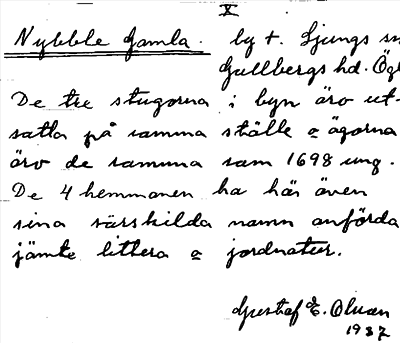 X
Nybble Gamla. by t. Ljungs sn
Gullbergs hd. Ögl
De tre stugorna i byn äro ut-
satta på samma ställe o ägorna
äro de samma som 1698 ung.
De 4 hemmanen ha här även
sina särskilda namn anförda
jämte littera o jordnatur.
Gustaf E. Olson
1937